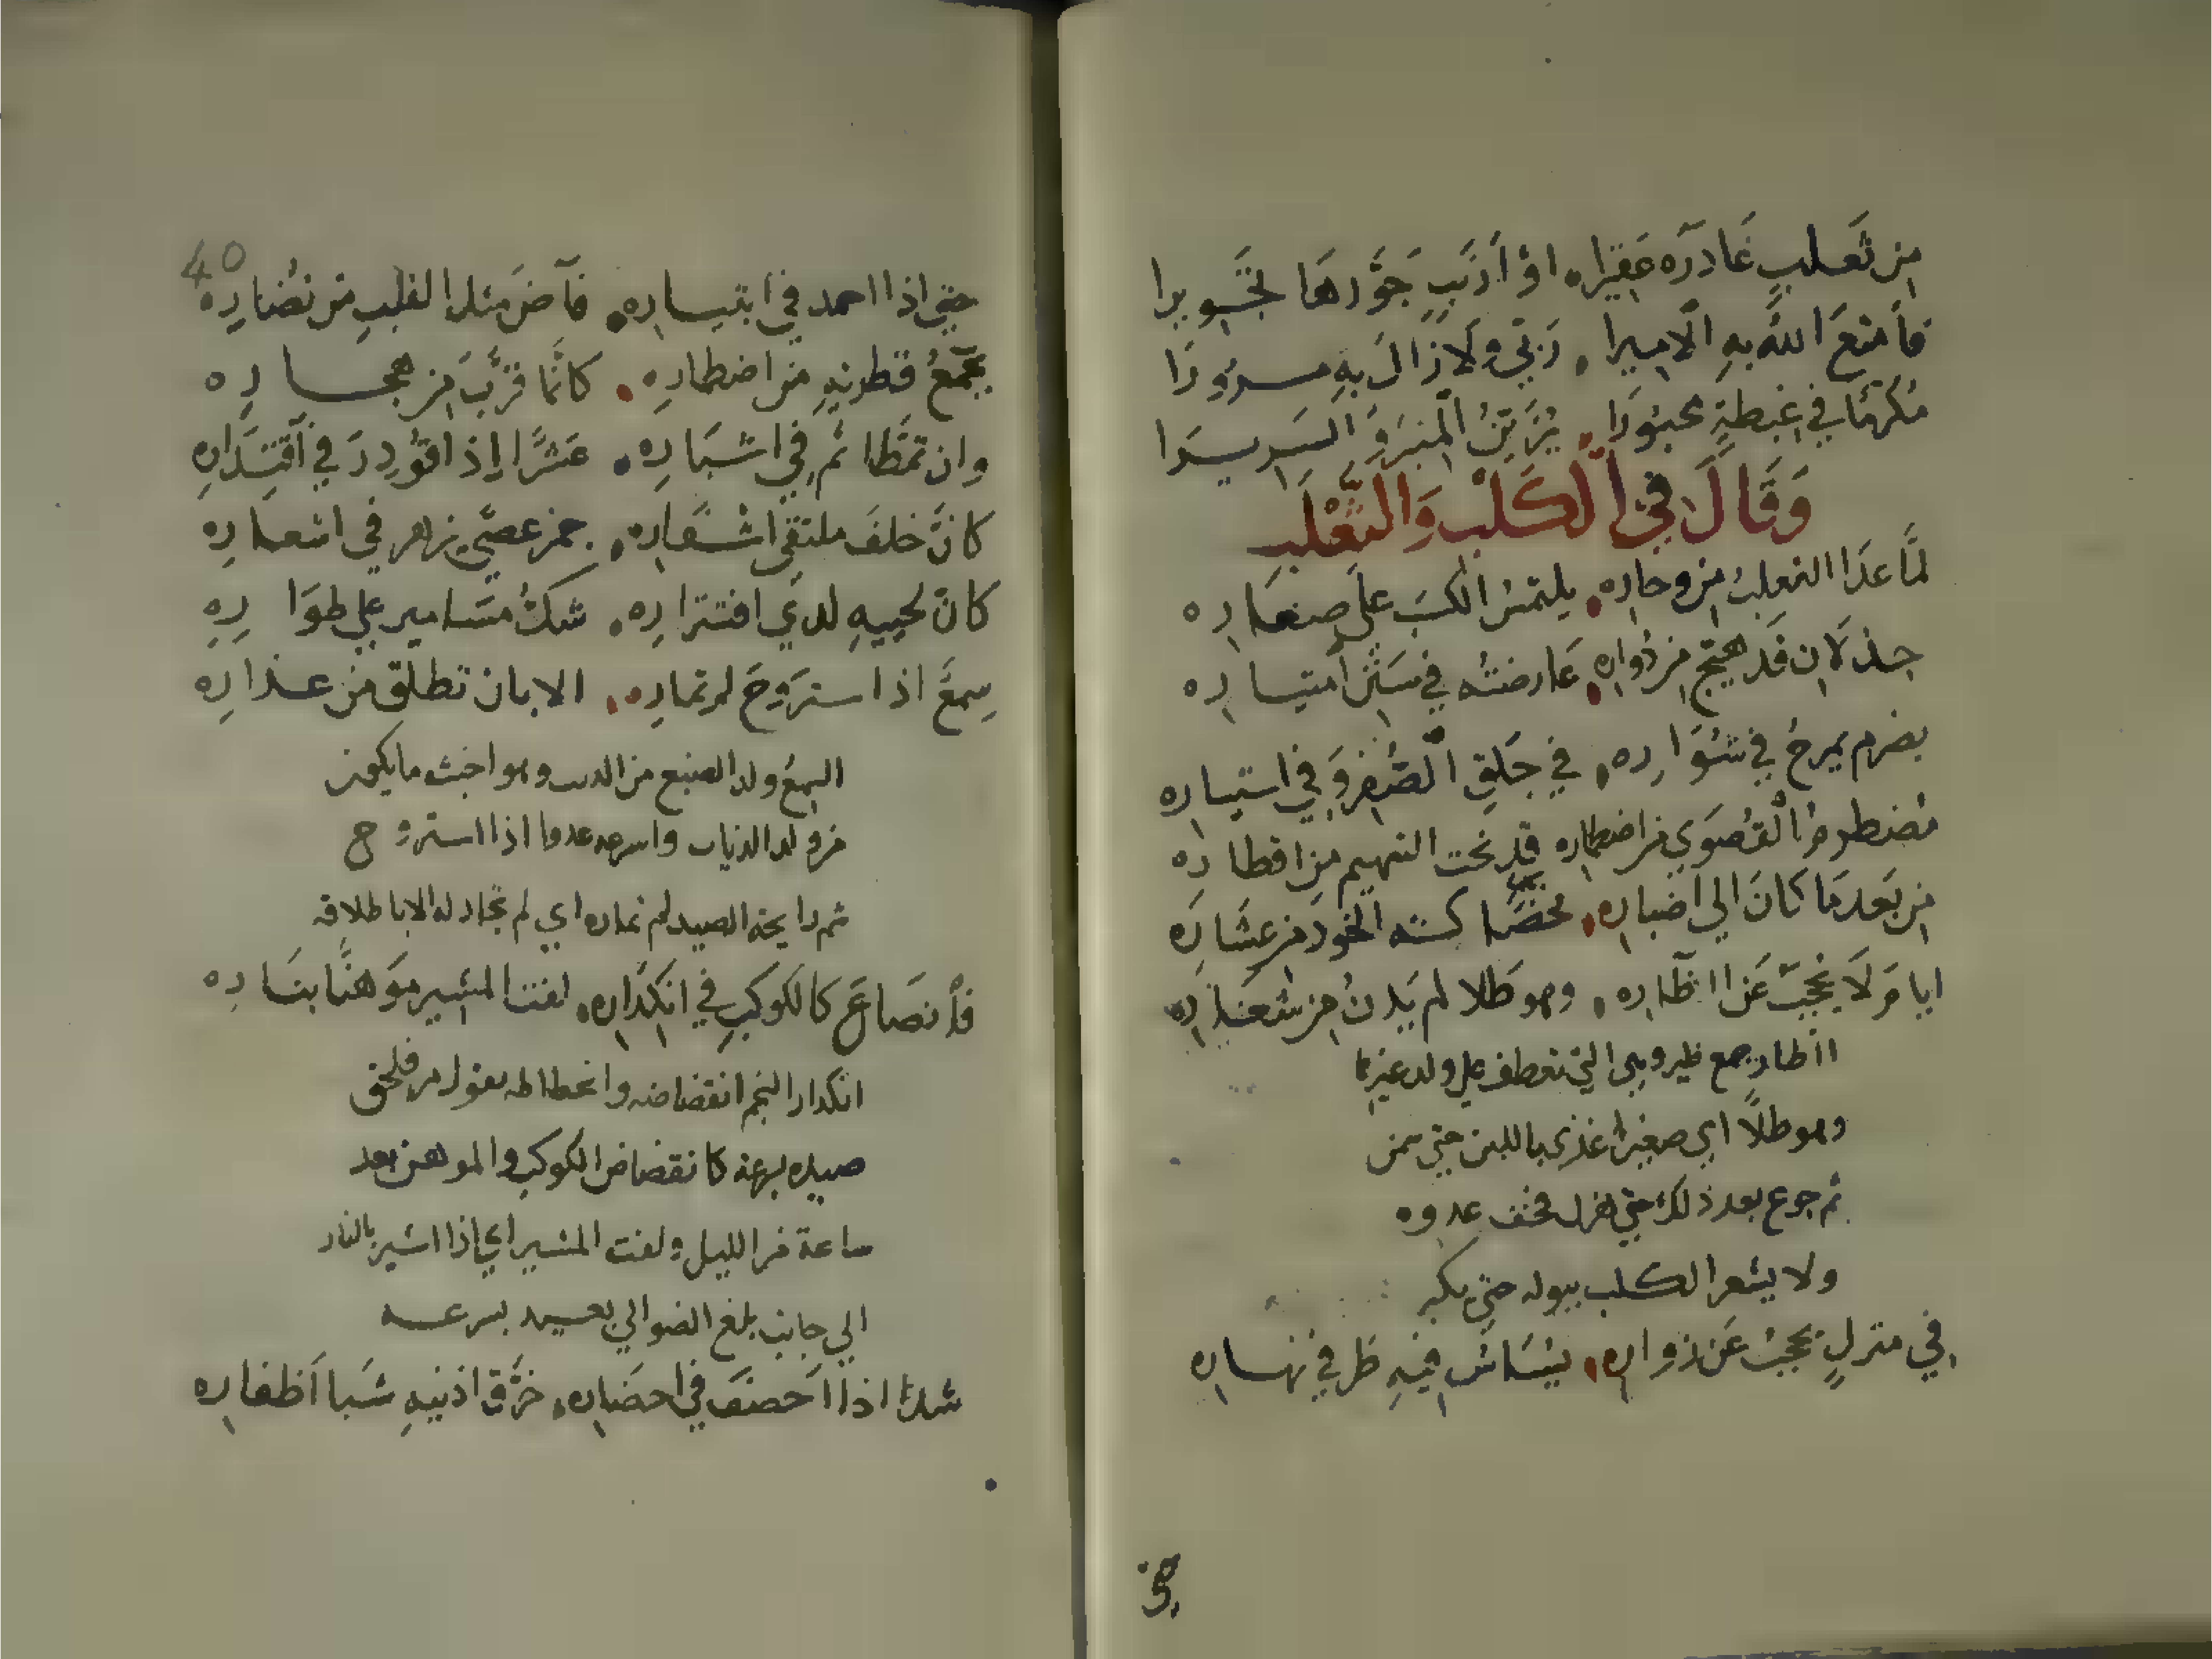 من ثَعلبٍ غَادرَه عَقيرا. اوْ أرنَبٍ جَوَّرهَا تجْويرا
فأمتعَ اللهُ بهِ الأميرا. ربّي ولَا زالَ بهِ مسرُورَا
مُكرمًا في غبطةٍ محبُورَا. يُزَيّنُ المنبَرَ وَالسَريرَا
وَقَالَ فِي الْكَلْبِ وَالثَّعْلَبِ
لمَّا غدَا الثعلبُ من وجاره. يلتمسُ الكسبَ على صغَاره
جذلَان قَد هيّج من دُواره. عَارضتُه في سَنَنِ امتيَاره
بضرم يمرحُ في شوَاره. في حَلقِ الصُفرِ وَفي استياره
مُضطرمًا القُصوَي من اضطماره قد نحت التسهيم من اقطاره
من بَعد مَا كانَ الي اضباره. محضًا كسته الخورُ من عشَارَه
ايامَ لَا يُحجَبُ عَن اظآره. وهو طَلا لم يَدنُ من شغَاره
اظار جمع ظير وهي التي تعطف علي ولد غيرها
وهو طلاً اي صغيرا غذي باللبن حتي سمن
ثم جوع بعد ذلك حتي هزل فخف عدوه
ولا يشغر الكلب ببوله حتي يكبر
في منزلٍ يحجبُ عَن زواره. يُسَاسُ فيهِ طرفي نهاره
في
40
حتي اذا احمد في ابتياره. فآضَ مثل القلبِ من نُضاره
يجمعُ قطريهِ من اضطماره. كانَّما قرّبَ من هجاره
وان تمَطّا تم في اشبَاره. عَشرًا إذا قوُدرَ في اقتدَاره
كانَّ خلفَ ملتقي اشفاره. جمر غضًي يزهر في استعاره
كانَّ لحييهِ لدي افتراره. شكُّ مسَامير علي طوَاره
سِمعَ اذا استرَوحَ لم تماره. الا بان تطلق من عذاره
السمع ولد الضبع من الذيب وهو اخبث ما يكون
من ولد الذياب واسرعه عدوا اذا استروح
شم رايحة الصيد لم تماره اي لم تجادله الا باطلاقه
فأنصَاعَ كالكوكبِ في انكدَاره. لفت المشير مَوهنًا بنَاره
انكدار النجم انقضاضه وانحطاطه يقول مر فلحق
صيده بسرعة كانقضاض الكوكب والموهن بعد
ساعة من الليل ولفت المشير اي اذا اشير بالنار
الي جانب بلغ الضو الي بعيد بسرعه
شدًّا اذا احصَفَ في احضَاره. خرَّق اذنيهِ شبا اظفاره